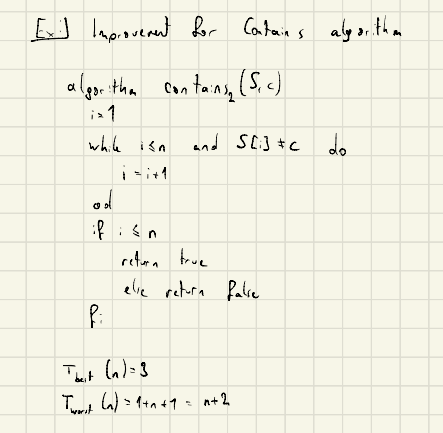 Ex: Improvement for Contains algorithm
algorithm contains₂(S, c)
i=1
while i≤n and S[i]≠c do
i=i+1
od
if i≤n
return true
else return false
fi
T_best(n)=3
T_worst(n)=1+n+1=n+2